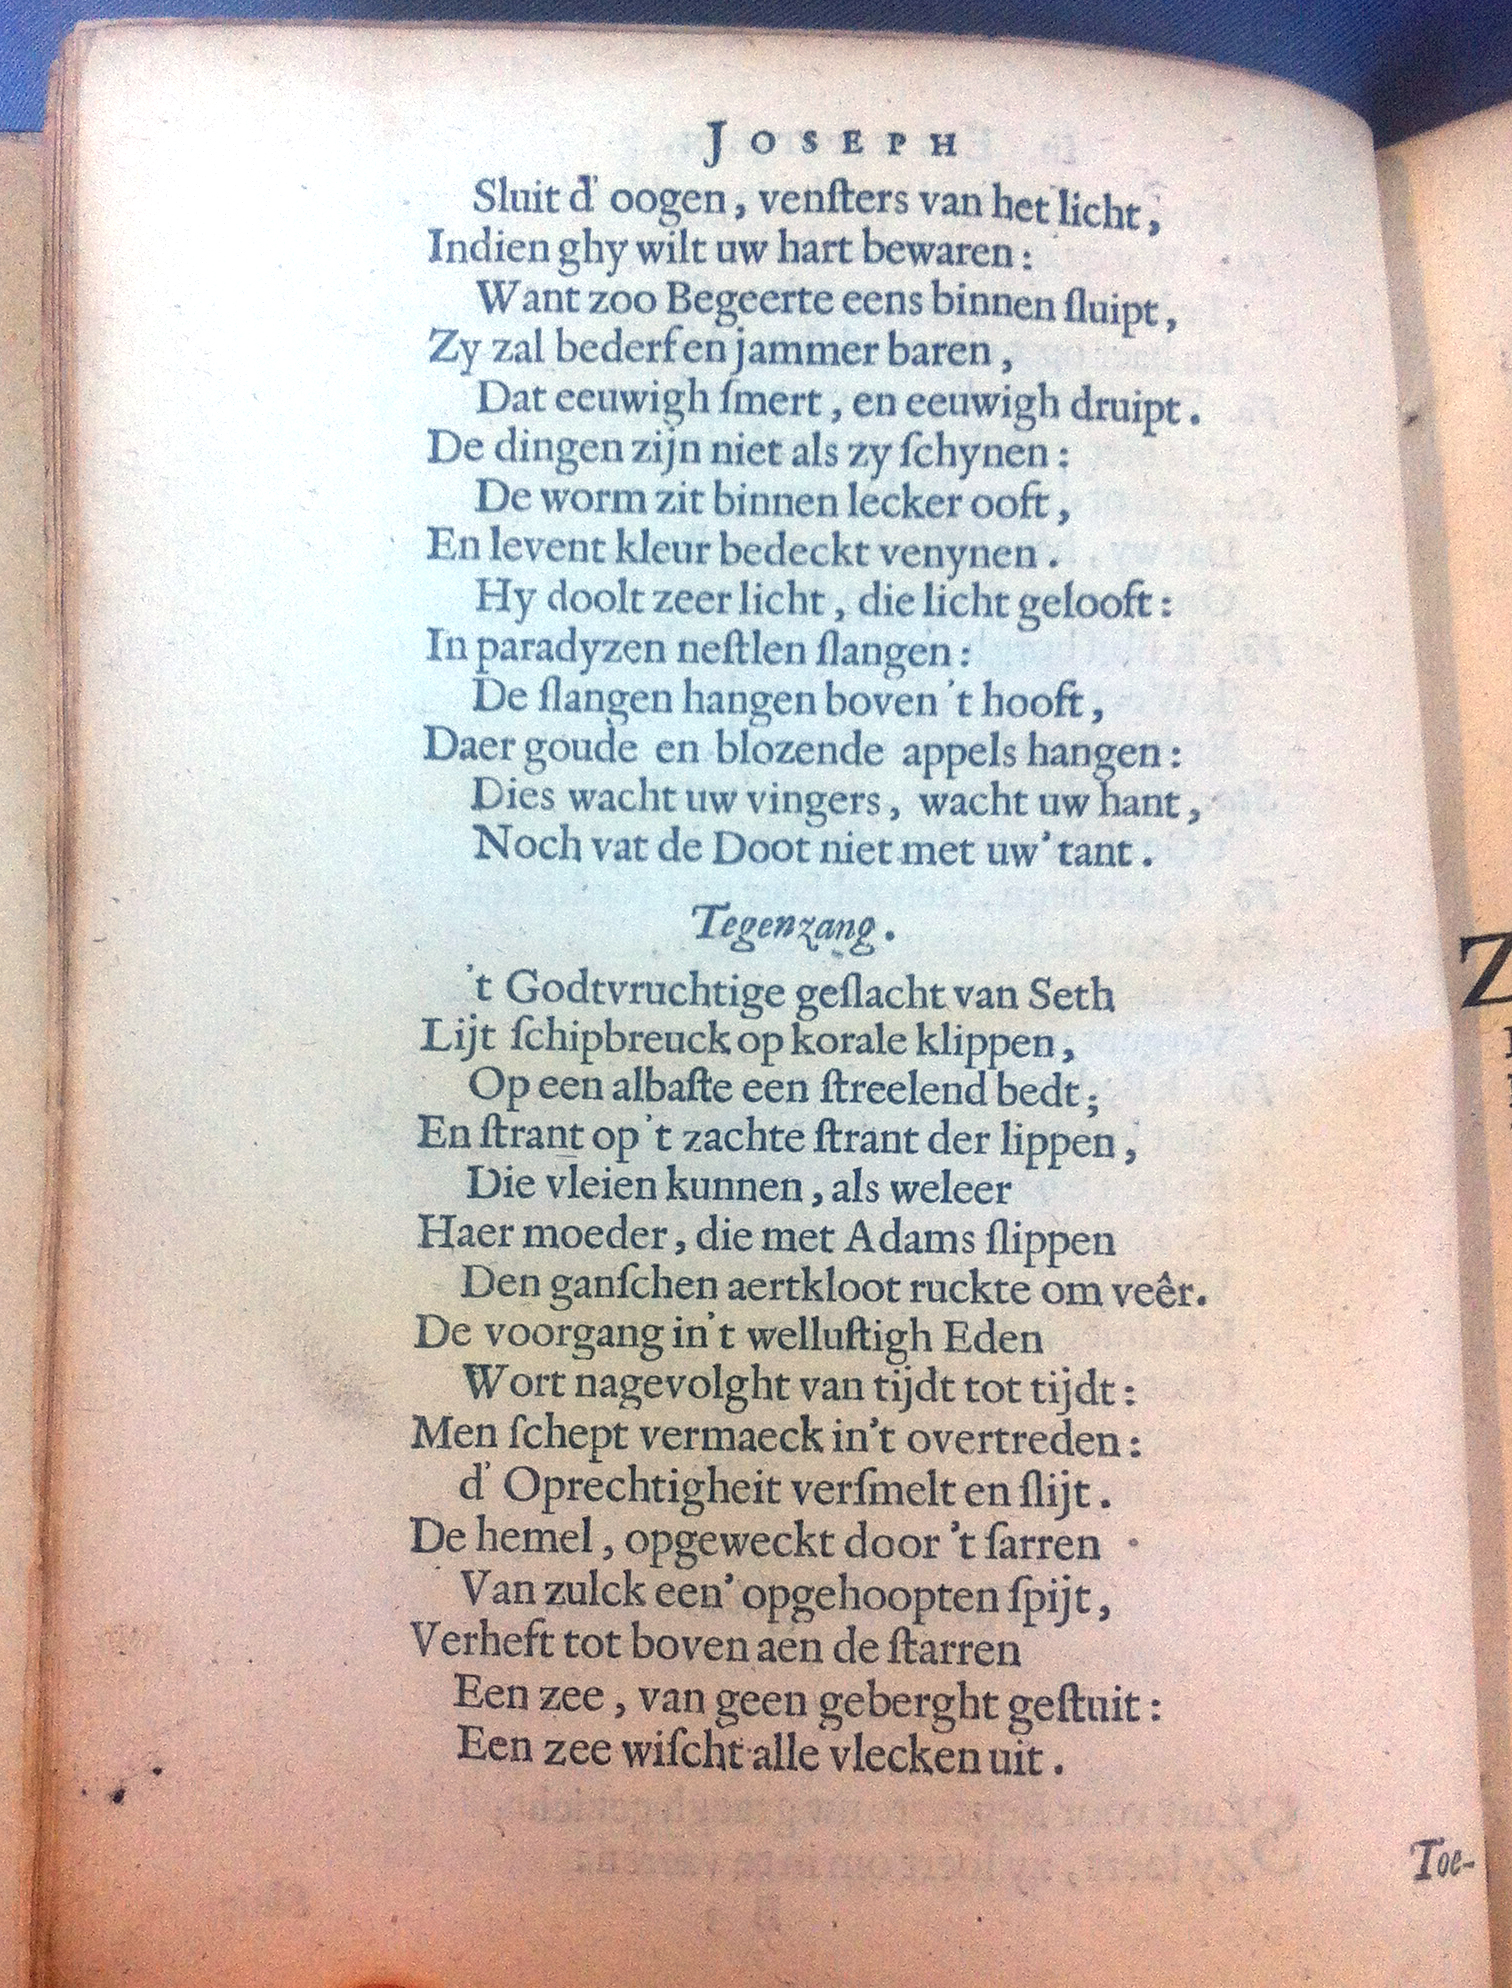 JOSEPH
Sluit d' oogen, venſters van het licht,
Indien ghy wilt uw hart bewaren:
Want zoo Begeerte eens binnen ſluipt,
Zy zal bederf en jammer baren,
Dat eeuwigh ſmert, en eeuwigh druipt.
De dingen zijn niet als zy ſchynen:
De worm zit binnen lecker ooft,
En levent kleur bedeckt venynen.
Hy doolt zeer licht, die licht gelooft:
In paradyzen neſtlen ſlangen:
De ſlangen hangen boven 't hooft,
Daer goude en blozende appels hangen:
Dies wacht uw vingers, wacht uw hant,
Noch vat de Doot niet met uw' tant.
Tegenzang.
't Godtvruchtige geſlacht van Seth
Lijt ſchipbreuck op korale klippen,
Op een albaſte een ſtreelend bedt;
En ſtrant op 't zachte ſtrant der lippen,
Die vleien kunnen, als weleer
Haer moeder, die met Adams ſlippen
Den ganſchen aertkloot ruckte om veêr.
De voorgang in't welluſtigh Eden
Wort nagevolght van tijdt tot tijdt:
Men ſchept vermaeck in't overtreden:
d' Oprechtigheit verſmelt en ſlijt.
De hemel, opgeweckt door 't ſarren
Van zulck een' opgehoopten ſpijt,
Verheft tot boven aen de ſtarren
Een zee, van geen geberght geſtuit:
Een zee wiſcht alle vlecken uit.
Toe-
Z